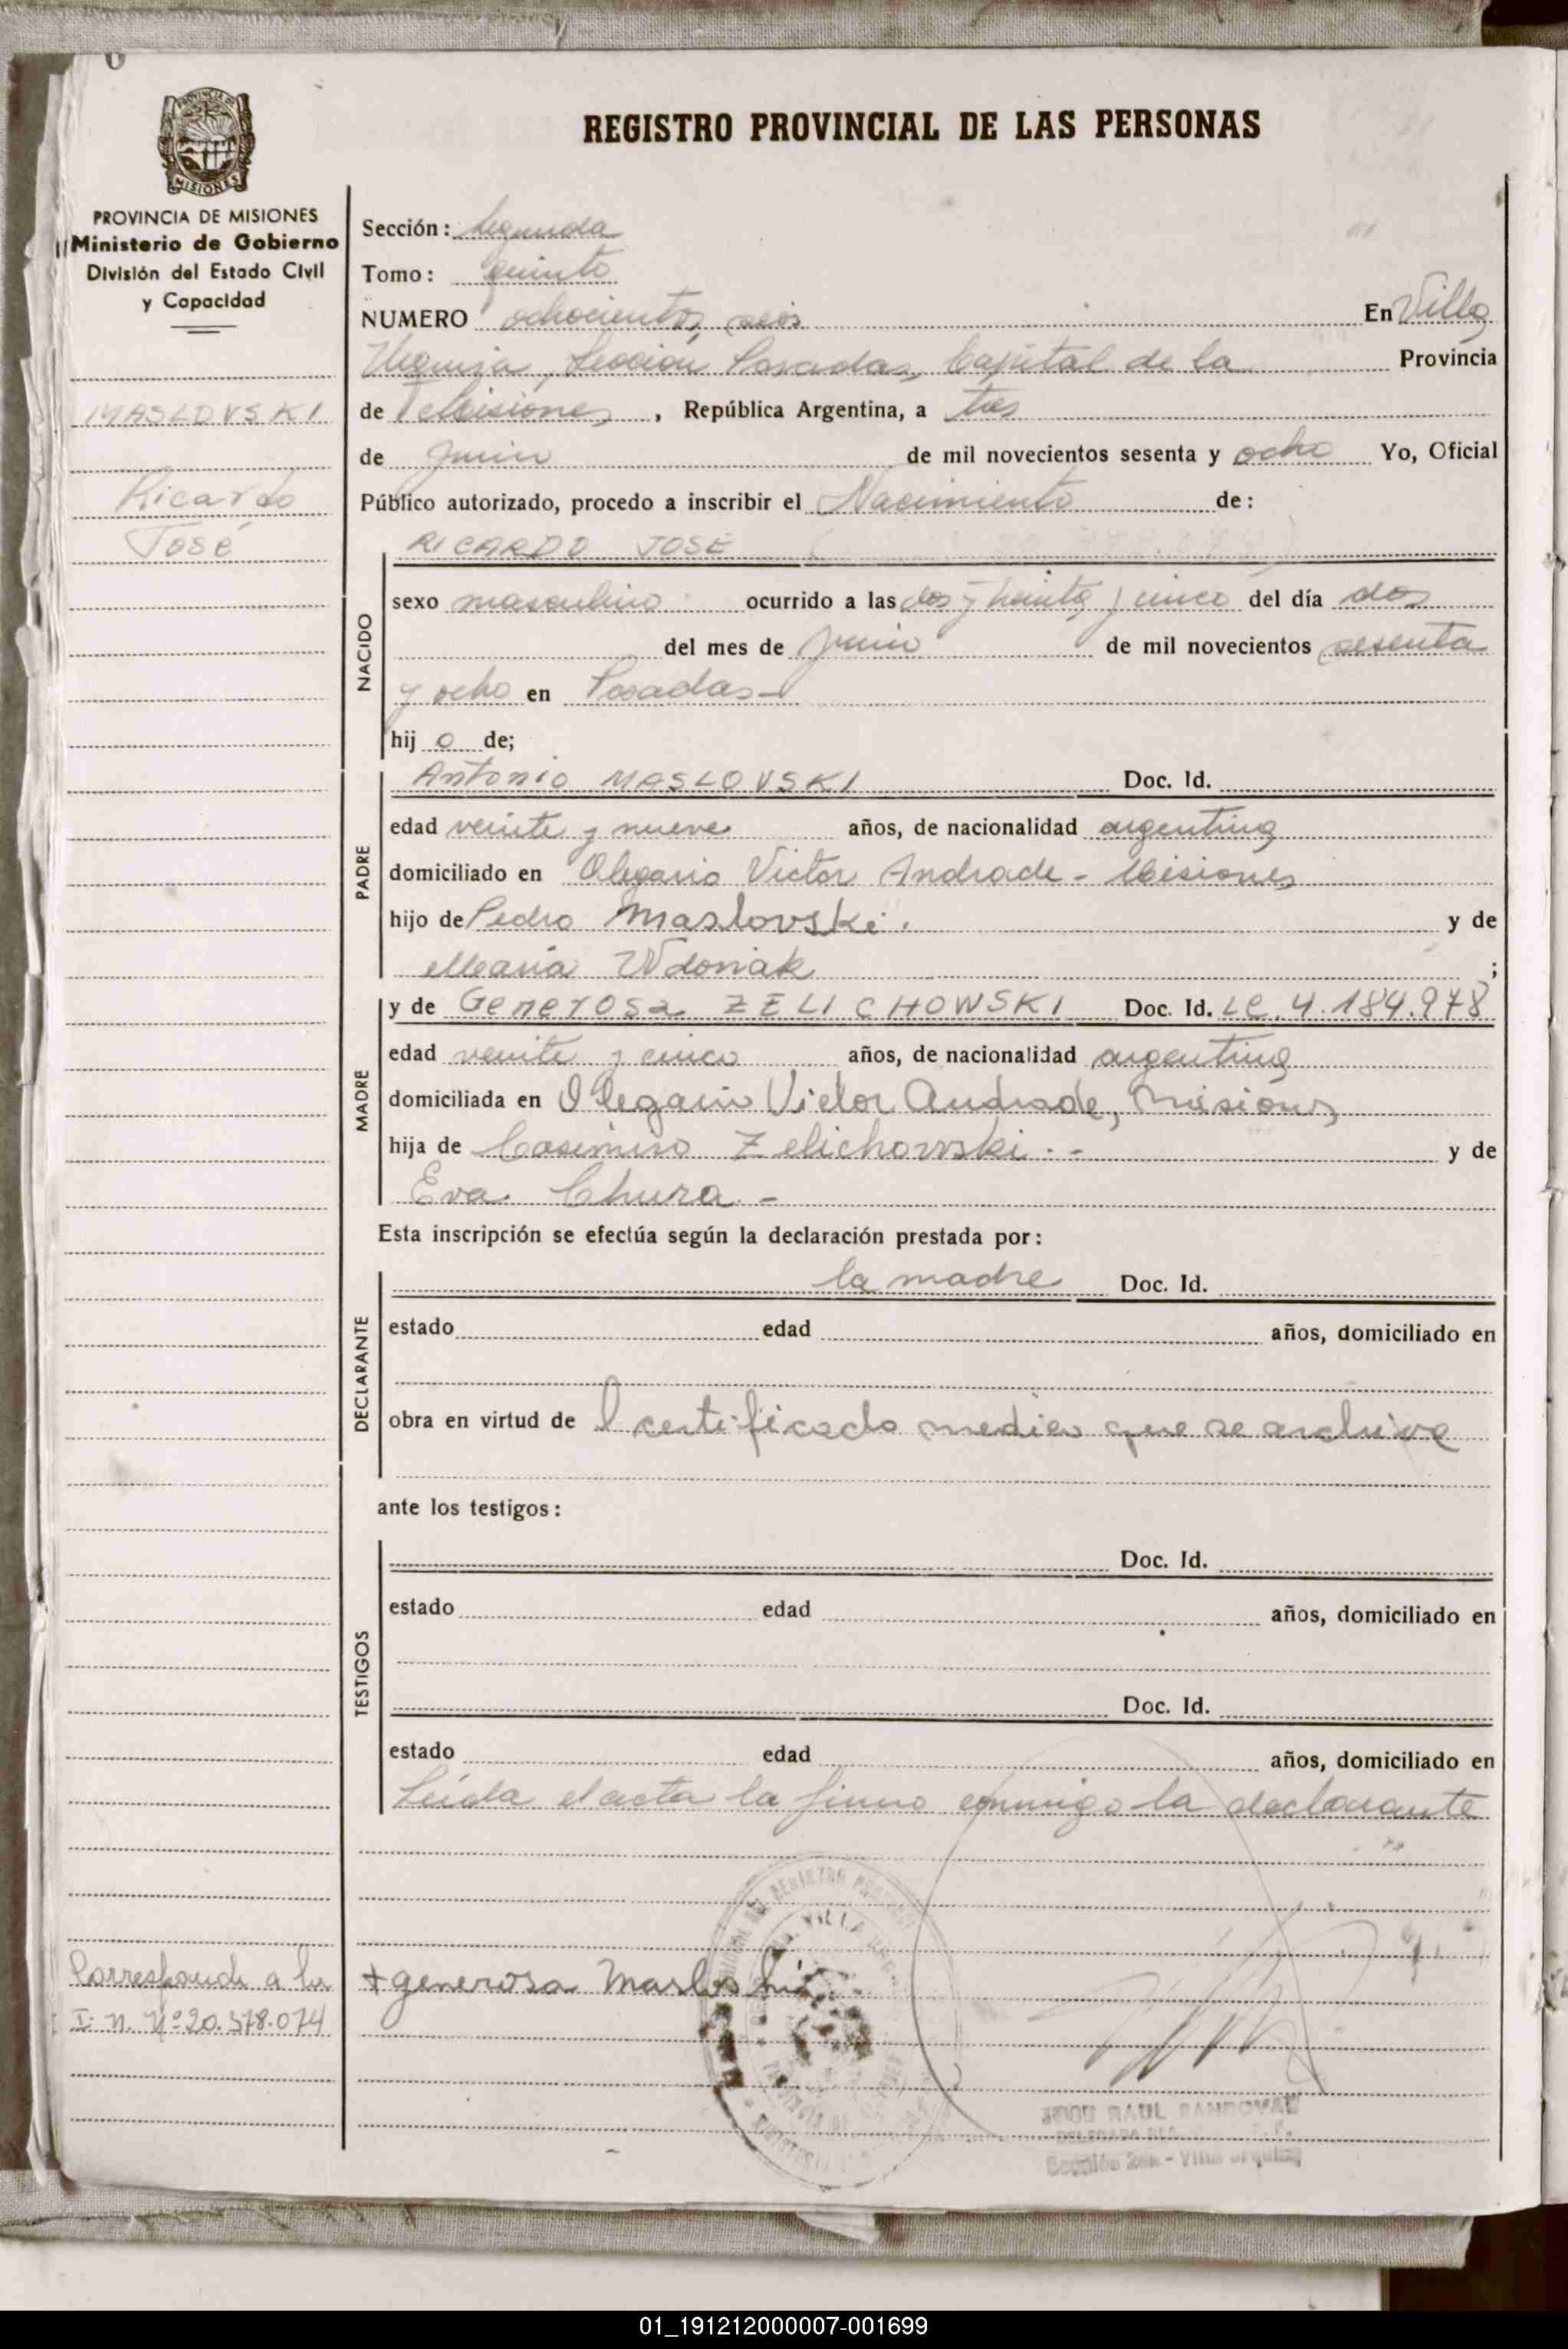 REGISTRO PROVINCIAL DE LAS PERSONAS
PROVINCIA DE
MISIONES
PROVINCIA DE MISIONES
Ministerio de Gobierno
División del Estado Civil
y Capacidad
MASLOVSKI
Ricardo
José
Corresponde a la
I. N. Nº 20.378.074
Sección: Segunda
Tomo: quinto
NUMERO ochocientos seis En Villa
Urquiza, Sección Posadas, Capital de la Provincia
de Misiones, República Argentina, a tres
de Junio de mil novecientos sesenta y ocho Yo, Oficial
Público autorizado, procedo a inscribir el Nacimiento de:
NACIDO
RICARDO JOSE
sexo masculino ocurrido a las dos y treinta y cinco del día dos
del mes de Junio de mil novecientos sesenta
y ocho en Posadas-
hij o de;
PADRE
Antonio MASLOVSKI Doc. Id.
edad veinte y nueve años, de nacionalidad argentina
domiciliado en Olegario Victor Andrade - Misiones
hijo de Pedro Maslovski. y de
Maria Wdoniak ;
MADRE
y de Generosa ZELICHOWSKI Doc. Id. LC. 4.184.978
edad veinte y cinco años, de nacionalidad argentina
domiciliada en Olegario Victor Andrade, Misiones
hija de Casimiro Zelichowski.- y de
Eva Chura.-
Esta inscripción se efectúa según la declaración prestada por:
DECLARANTE
la madre Doc. Id.
estado edad años, domiciliado en
obra en virtud de l certificado medico que se archiva
ante los testigos:
TESTIGOS
Doc. Id.
estado edad años, domiciliado en
Doc. Id.
estado edad años, domiciliado en
Leída el acta la firma conmigo la declarante
+generosa
JOSE RAUL SANDOVAL
Sección 2da - Villa Urquiza
01_191212000007-001699